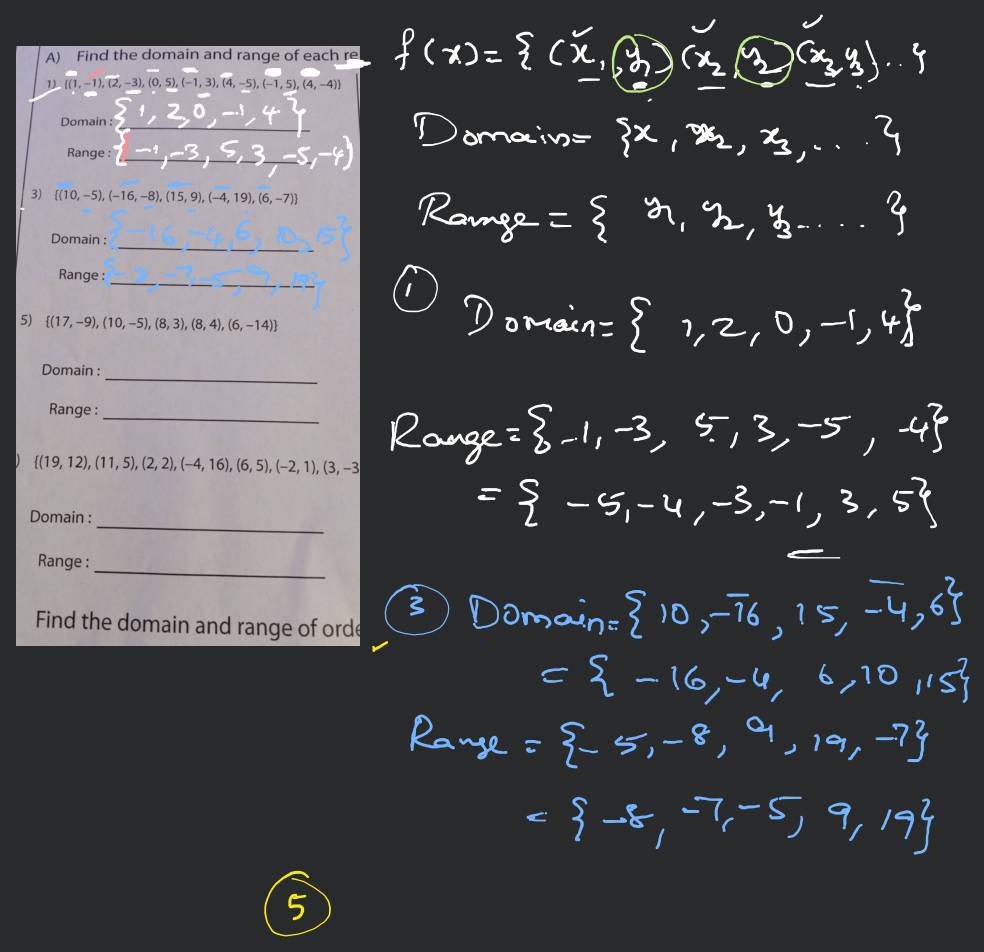 A) Find the domain and range of each re
1) {(1, −1), (2, −3), (0, 5), (−1, 3), (4, −5), (−1, 5), (4, −4)}
Domain : {1, 2, 0, −1, 4}
Range : {−1, −3, 5, 3, −5, −4}
3) {(10, −5), (−16, −8), (15, 9), (−4, 19), (6, −7)}
Domain : {−16, −4, 6, 10, 15}
Range : {−8, −7, −5, 9, 19}
5) {(17, −9), (10, −5), (8, 3), (8, 4), (6, −14)}
Domain :
Range :
) {(19, 12), (11, 5), (2, 2), (−4, 16), (6, 5), (−2, 1), (3, −3
Domain :
Range :
Find the domain and range of orde
f(x) = { (x₁, y₁) (x₂, y₂) (x₃, y₃) . . }
Domain = {x, x₂, x₃, . . . }
Range = { y₁, y₂, y₃ . . . . }
1 Domain = { 1, 2, 0, −1, 4}
Range = {−1, −3, 5, 3, −5, −4}
= { −5, −4, −3, −1, 3, 5}
3 Domain = {10, −16, 15, −4, 6}
= { −16, −4, 6, 10, 15}
Range = {−5, −8, 9, 19, −7}
= {−8, −7, −5, 9, 19}
5